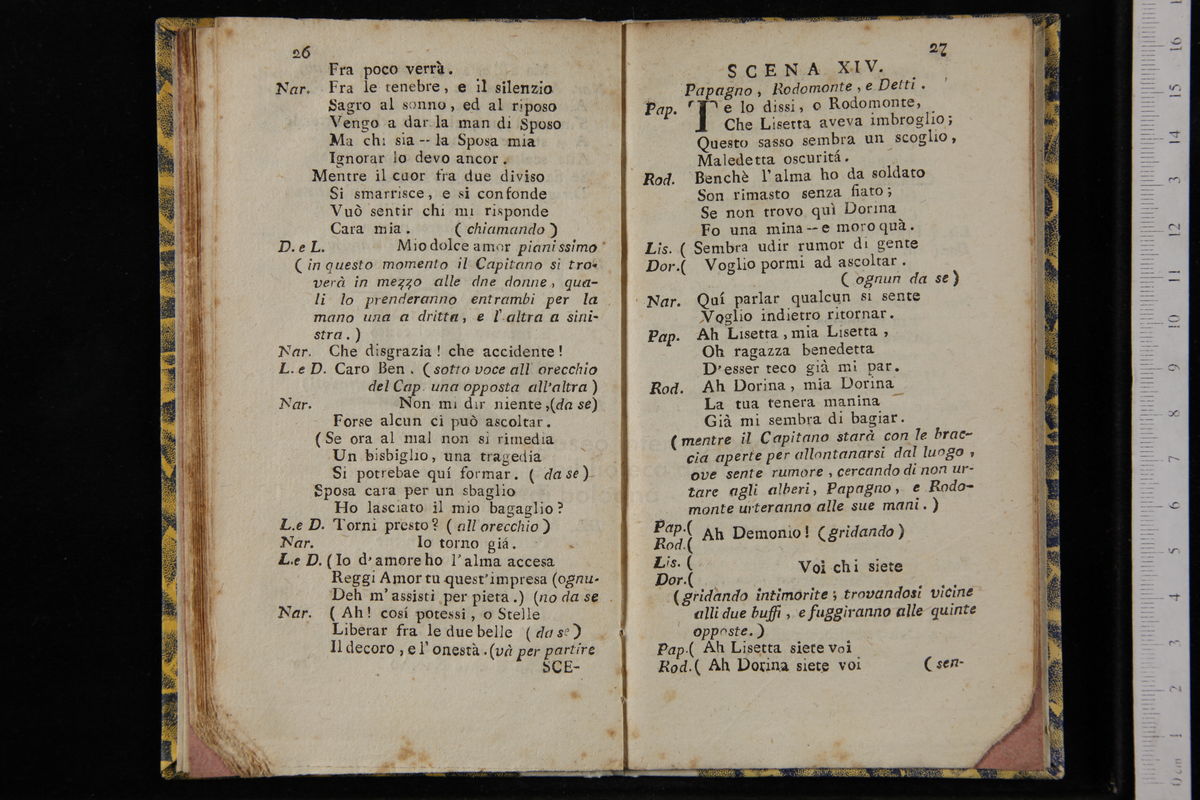 26
Fra poco verrà.
Nar. Fra le tenebre, e il silenzio
Sagro al sonno, ed al riposo
Vengo a dar la man di Sposo
Ma chi sia -- la Sposa mia
Ignorar lo devo ancor.
Mentre il cuor fra due diviso
Si smarrisce, e si confonde
Vuò sentir chi mi risponde
Cara mia. (chiamando)
D. e L. Mio dolce amor pianissimo
(in questo momento il Capitano si tro-
verà in mezzo alle dne donne, qua-
li lo prenderanno entrambi per la
mano una a dritta, e l'altra a sini-
stra.)
Nar. Che disgrazia! che accidente!
L. e D. Caro Ben. (sotto voce all' orecchio
del Cap. una opposta all'altra)
Nar. Non mi dir niente,(da se)
Forse alcun ci può ascoltar.
(Se ora al mal non si rimedia
Un bisbiglio, una tragedia
Si potrebae quí formar. (da se)
Sposa cara per un sbaglio
Ho lasciato il mio bagaglio?
L.e D. Torni presto? (all'orecchio)
Nar. Io torno giá.
L.e D. (Io d'amore ho l'alma accesa
Reggi Amor tu quest'impresa (ognu-
Deh m'assisti per pieta.) (no da se
Nar. (Ah! cosí potessi, o Stelle
Liberar fra le due belle (da se)
Il decoro, e l' onestà.(và per partire
SCE-
27
SCENA XIV.
Papagno, Rodomonte, e Detti.
Pap. Te lo dissi, o Rodomonte,
Che Lisetta aveva imbroglio;
Questo sasso sembra un scoglio,
Maledetta oscuritá.
Rod. Benchè l'alma ho da soldato
Son rimasto senza fiato;
Se non trovo quì Dorina
Fo una mina -- e moro quà.
Lis. ( Sembra udir rumor di gente
Dor.( Voglio pormi ad ascoltar.
(ognun da se)
Nar. Quí parlar qualcun si sente
Voglio indietro ritornar.
Pap. Ah Lisetta, mia Lisetta,
Oh ragazza benedetta
D'esser teco già mi par.
Rod. Ah Dorina, mia Dorina
La tua tenera manina
Già mi sembra di bagiar.
(mentre il Capitano starà con le brac-
cia aperte per allontanarsi dal luogo,
ove sente rumore, cercando di non ur-
tare agli alberi, Papagno, e Rodo-
monte urteranno alle sue mani.)
Pap.(
Rod.( Ah Demonio! (gridando)
Lis. (
Dor.( Voi chi siete
(gridando intimorite; trovandosi vicine
alli due buffi, e fuggiranno alle quinte
opposte.)
Pap.( Ah Lisetta siete voi
Rod.( Ah Dorina siete voi (sen-